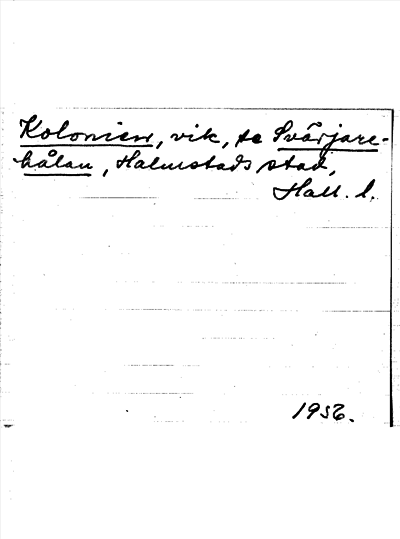 Kolonien, vik, se Svärjare-
hålan, Halmstads stad,
Hall. l.
1956.